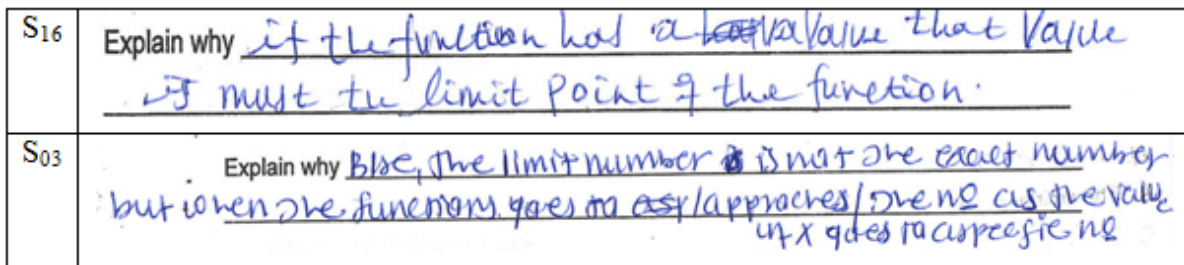 S16
Explain why if the function has a value that value
is must the limit point of the function.
S03
Explain why Bse, the limit number is not the exact number
but when the functions goes to /approaches/ the no as the value
in x goes to a specific no